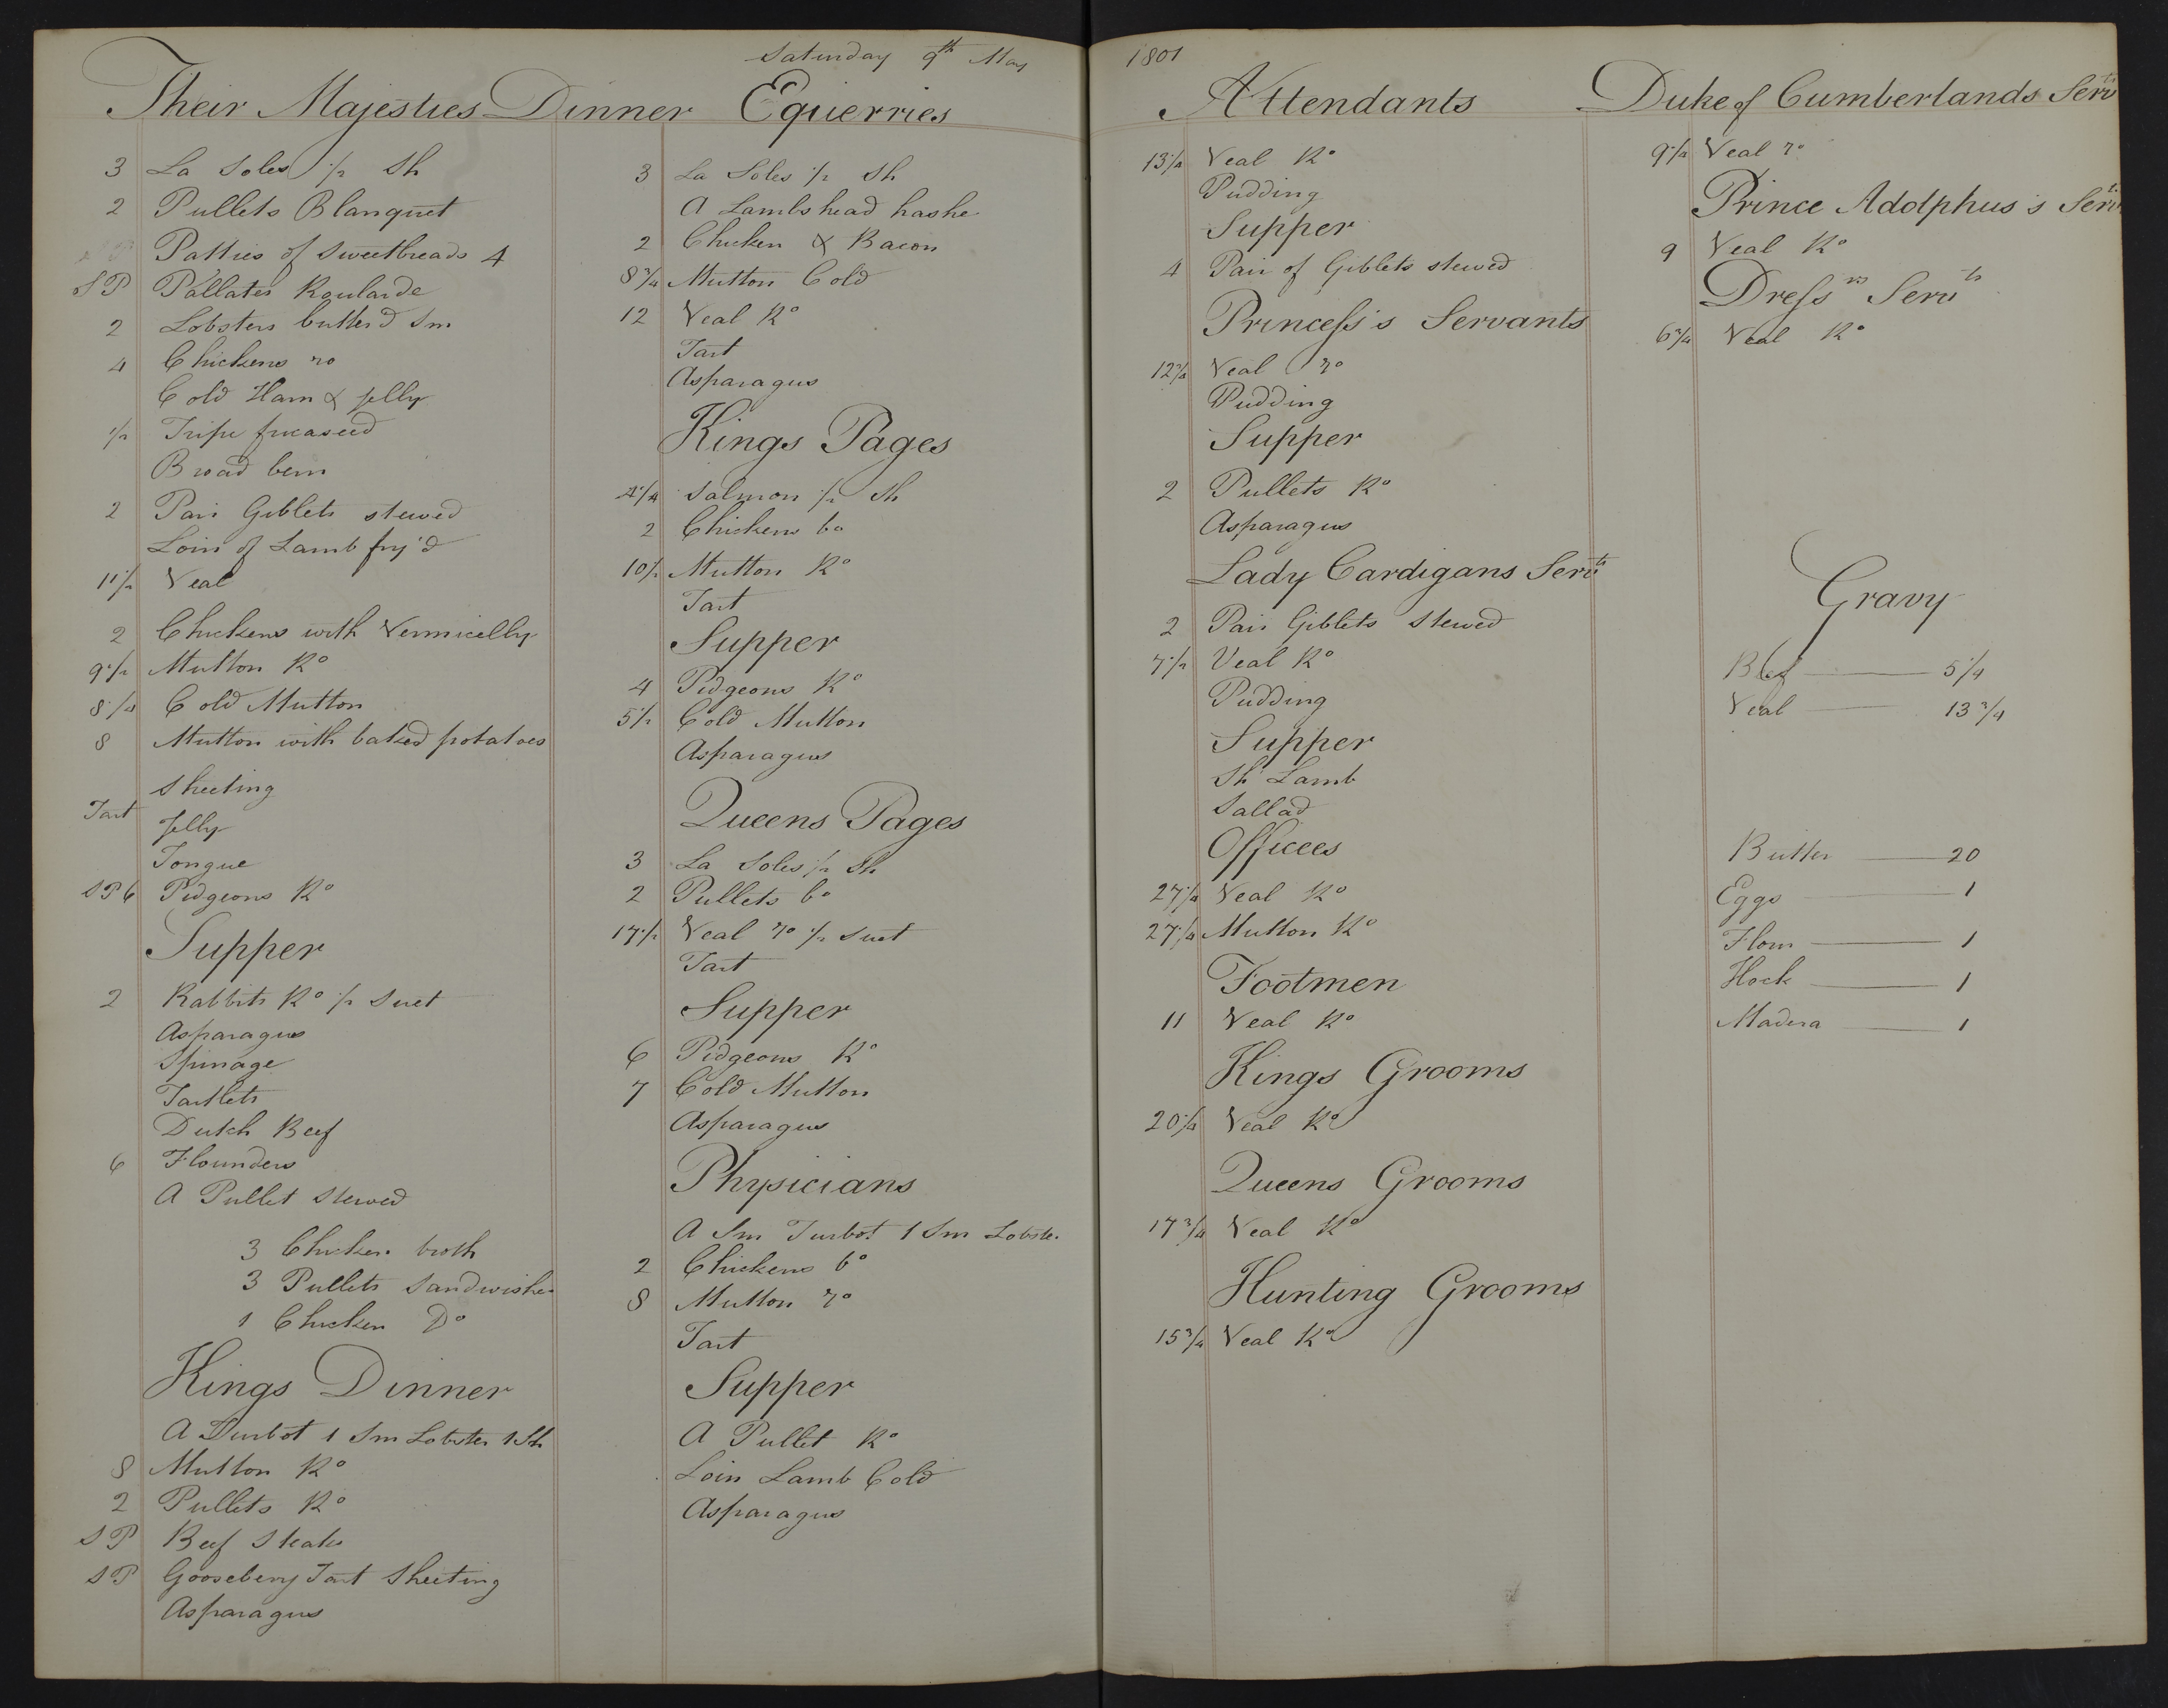 Saturday 9th May 1801
Their Majesties Dinner
3 La Soles 1/2 Sh
2 Pullets Blanquet
Patties of Sweetbreads 4
SP Pallates Roularde
2 Lobsters butter'd Sm
4 Chickens ro
Cold Ham & jelly
1/2 Tripe fricaseed
Broad
2 Pair Giblets stewed
Loin of Lamb fry'd
11 1/2 Veal
2 Chickens with Vermicelly
9 1/2 Mutton Ro
8 1/4 Cold Mutton
8 Mutton with baked potatoes
Sheeting
Tart Jelly
Tongue
SP 6 Pidgeons Ro
Supper
2 Rabbits Ro 1/2 Suet
Asparagus
Spinage
Tartlets
Dutch Beef
6 Flounders
A Pullet Stewed
3 Chicken broth
3 Pullets Sandwishes
1 Chicken Do
Kings Dinner
A Turbot 1 Sm Lobster 1 Sh
8 Mutton Ro
2 Pullets Ro
SP Beef Steaks
SP Gooseberry Tart Sheeting
Asparagus
Equerries
3 La Soles 1/2 Sh
A Lambshead hashe
2 Chicken & Bacon
8 3/4 Mutton Cold
12 Veal Ro
Tart
Asparagus
Kings Pages
4 1/4 Salmon 1/2 Sh
2 Chickens bo
10 1/2 Mutton Ro
Tart
Supper
4 Pidgeons Ro
5 1/2 Cold Mutton
Asparagus
Queens Pages
3 La Soles 1/2 Sh
2 Pullets bo
17 1/2 Veal ro 1/2 Suet
Tart
Supper
6 Pidgeons Ro
7 Cold Mutton
Asparagus
Physicians
A Sm Turbot 1 Sm Lobster
2 Chickens bo
8 Mutton ro
Tart
Supper
A Pullet Ro
Loin Lamb Cold
Asparagus
Attendants
13 1/4 Veal Ro
Pudding
Supper
4 Pair of Giblets stewed
Princess's Servants
12 3/4 Veal ro
Pudding
Supper
2 Pullets Ro
Asparagus
Lady Cardigans Servts
2 Pair Giblets Stewed
7 1/2 Veal Ro
Pudding
Supper
Sh Lamb
Sallad
Offices
27 1/4 Veal Ro
27 1/4 Mutton Ro
Footmen
11 Veal Ro
Kings Grooms
20 1/4 Veal Ro
Queens Grooms
17 3/4 Veal Ro
Hunting Grooms
15 3/4 Veal Ro
Duke of Cumberlands Servts
9 1/4 Veal ro
Prince Adolphus's Servts
9 Veal Ro
Dressrs Servts
6 3/4 Veal Ro
Gravy
Beef 5 1/4
Veal 13 3/4
Butter 20
Eggs 1
Flour 1
Hock 1
Madera 1